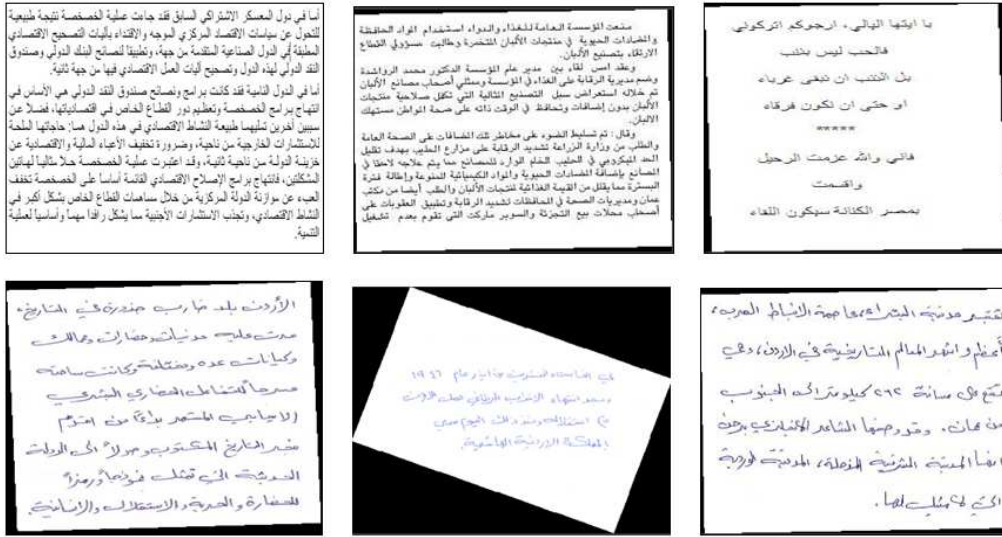 أما في دول المعسكر الاشتراكي السابق فقد جاءت عملية الخصخصة نتيجة طبيعية
للتحول عن سياسات الاقتصاد المركزي الموجه والاقتداء بآليات التصحيح الاقتصادي
المطبقة في الدول الصناعية المتقدمة من جهة، وتطبيقا لنصائح البنك الدولي وصندوق
النقد الدولي لهذه الدول وتصحيح آليات العمل الاقتصادي فيها من جهة ثانية.
أما في الدول النامية فقد كانت برامج ونصائح صندوق النقد الدولي هي الأساس في
انتهاج برامج الخصخصة وتعظيم دور القطاع الخاص في اقتصادياتها، فضلا عن
سببين آخرين تمليهما طبيعة النشاط الاقتصادي في هذه الدول هما: حاجاتها الملحة
للاستثمارات الخارجية من ناحية، وضرورة تخفيف الأعباء المالية والاقتصادية عن
خزينة الدولة من ناحية ثانية، وقد اعتبرت عملية الخصخصة حلا مثاليا لهاتين
المشكلتين، فانتهاج برامج الإصلاح الاقتصادي القائمة أساسا على الخصخصة تخفف
العبء عن موازنة الدولة المركزية من خلال مساهمات القطاع الخاص بشكل أكبر في
النشاط الاقتصادي، وتجذب الاستثمارات الأجنبية مما يشكل رافدا مهما وأساسيا لعملية
التنمية.
منعت المؤسسة العامة للغذاء والدواء استخدام المواد الحافظة
والمضادات الحيوية في منتجات الألبان المتخمرة وطالبت مسؤولي القطاع
الارتقاء بتصنيع الألبان.
وعقد امس لقاء بين مدير عام المؤسسة الدكتور محمد الرواشدة
وضم مديرية الرقابة على الغذاء في المؤسسة وممثلي أصحاب مصانع الألبان
تم خلاله استعراض سبل التصنيع المثالية التي تكفل صلاحية منتجات
الألبان بدون إضافات وتحافظ في الوقت ذاته على صحة المواطن مستهلك
الالبان.
وقال: تم تسليط الضوء على مخاطر تلك المضافات على الصحة العامة
والطلب من وزارة الزراعة تشديد الرقابة على مزارع الحليب بهدف تقليل
الحد الميكروبي في الحليب الخام الوارد للمصانع مما يتم علاجه لاحقا في
المصانع بإضافة المضادات الحيوية والمواد الكيميائية الممنوعة وإطالة فترة
البسترة مما يقلل من القيمة الغذائية لمنتجات الألبان والطلب أيضا من مكتب
عمان ومديريات الصحة في المحافظات تشديد الرقابة وتطبيق العقوبات على
أصحاب محلات بيع التجزئة والسوبر ماركت التي تقوم بعدم تشغيل
يا ايتها اليالي، ارجوكم اتركوني
فالحب ليس بذنب
بل الذنب ان نبقى غرباء
او حتى ان نكون فرقاء
*****
فاني والله عزمت الرحيل
واقسمت
بمصر الكنانة سيكون اللقاء
الأردن بلد ضارب جذوره في التاريخ،
مرت عليه مدنيات وحضارات وممالك
وكيانات عدة ومختلفة وكانت ساحته
مسرحا للتفاعل الحضاري البشري
الايجابي المستمر بدءا من أقدم
التاريخ المكتوب وصولا الى الدولة
الحديثة التي تمثل نموذجا ورمزا
للحضارة والحرية والاستقلال والانسانية.
في الخامس والعشرين من أيار عام ١٩٤٦
وبعد انتهاء الانتداب البريطاني
استقلاله ومنذ ذلك اليوم سمي
بالمملكة الأردنية الهاشمية.
تعتبر مدينة البتراء، عاصمة الانباط العرب،
أعظم واشهر المعالم التاريخية في الاردن، وهي
تقع على مسافة ٢٦٢ كيلومتر الى الجنوب
من عمان. وقد وصفها الشاعر الانجليزي بيرجن
انها المدينة الشرقية المذهلة، المدينة الوردية
التي لا مثيل لها.